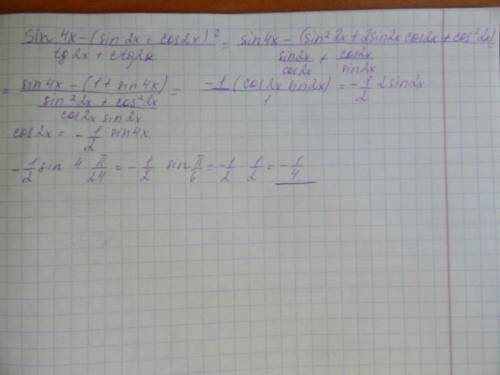 (sin 4x - (sin 2x + cos 2x)²) / (tg 2x + ctg 2x) = (sin 4x - (sin² 2x + 2 sin 2x cos 2x + cos² 2x)) / (sin 2x / cos 2x + cos 2x / sin 2x)
= (sin 4x - (1 + sin 4x)) / ((sin² 2x + cos² 2x) / (cos 2x sin 2x)) = -1 (cos 2x sin 2x) / 1 = -1/2 2 sin 2x
cos 2x = -1/2 sin 4x
-1/2 sin 4 π/24 = -1/2 sin π/6 = -1/2 · 1/2 = -1/4